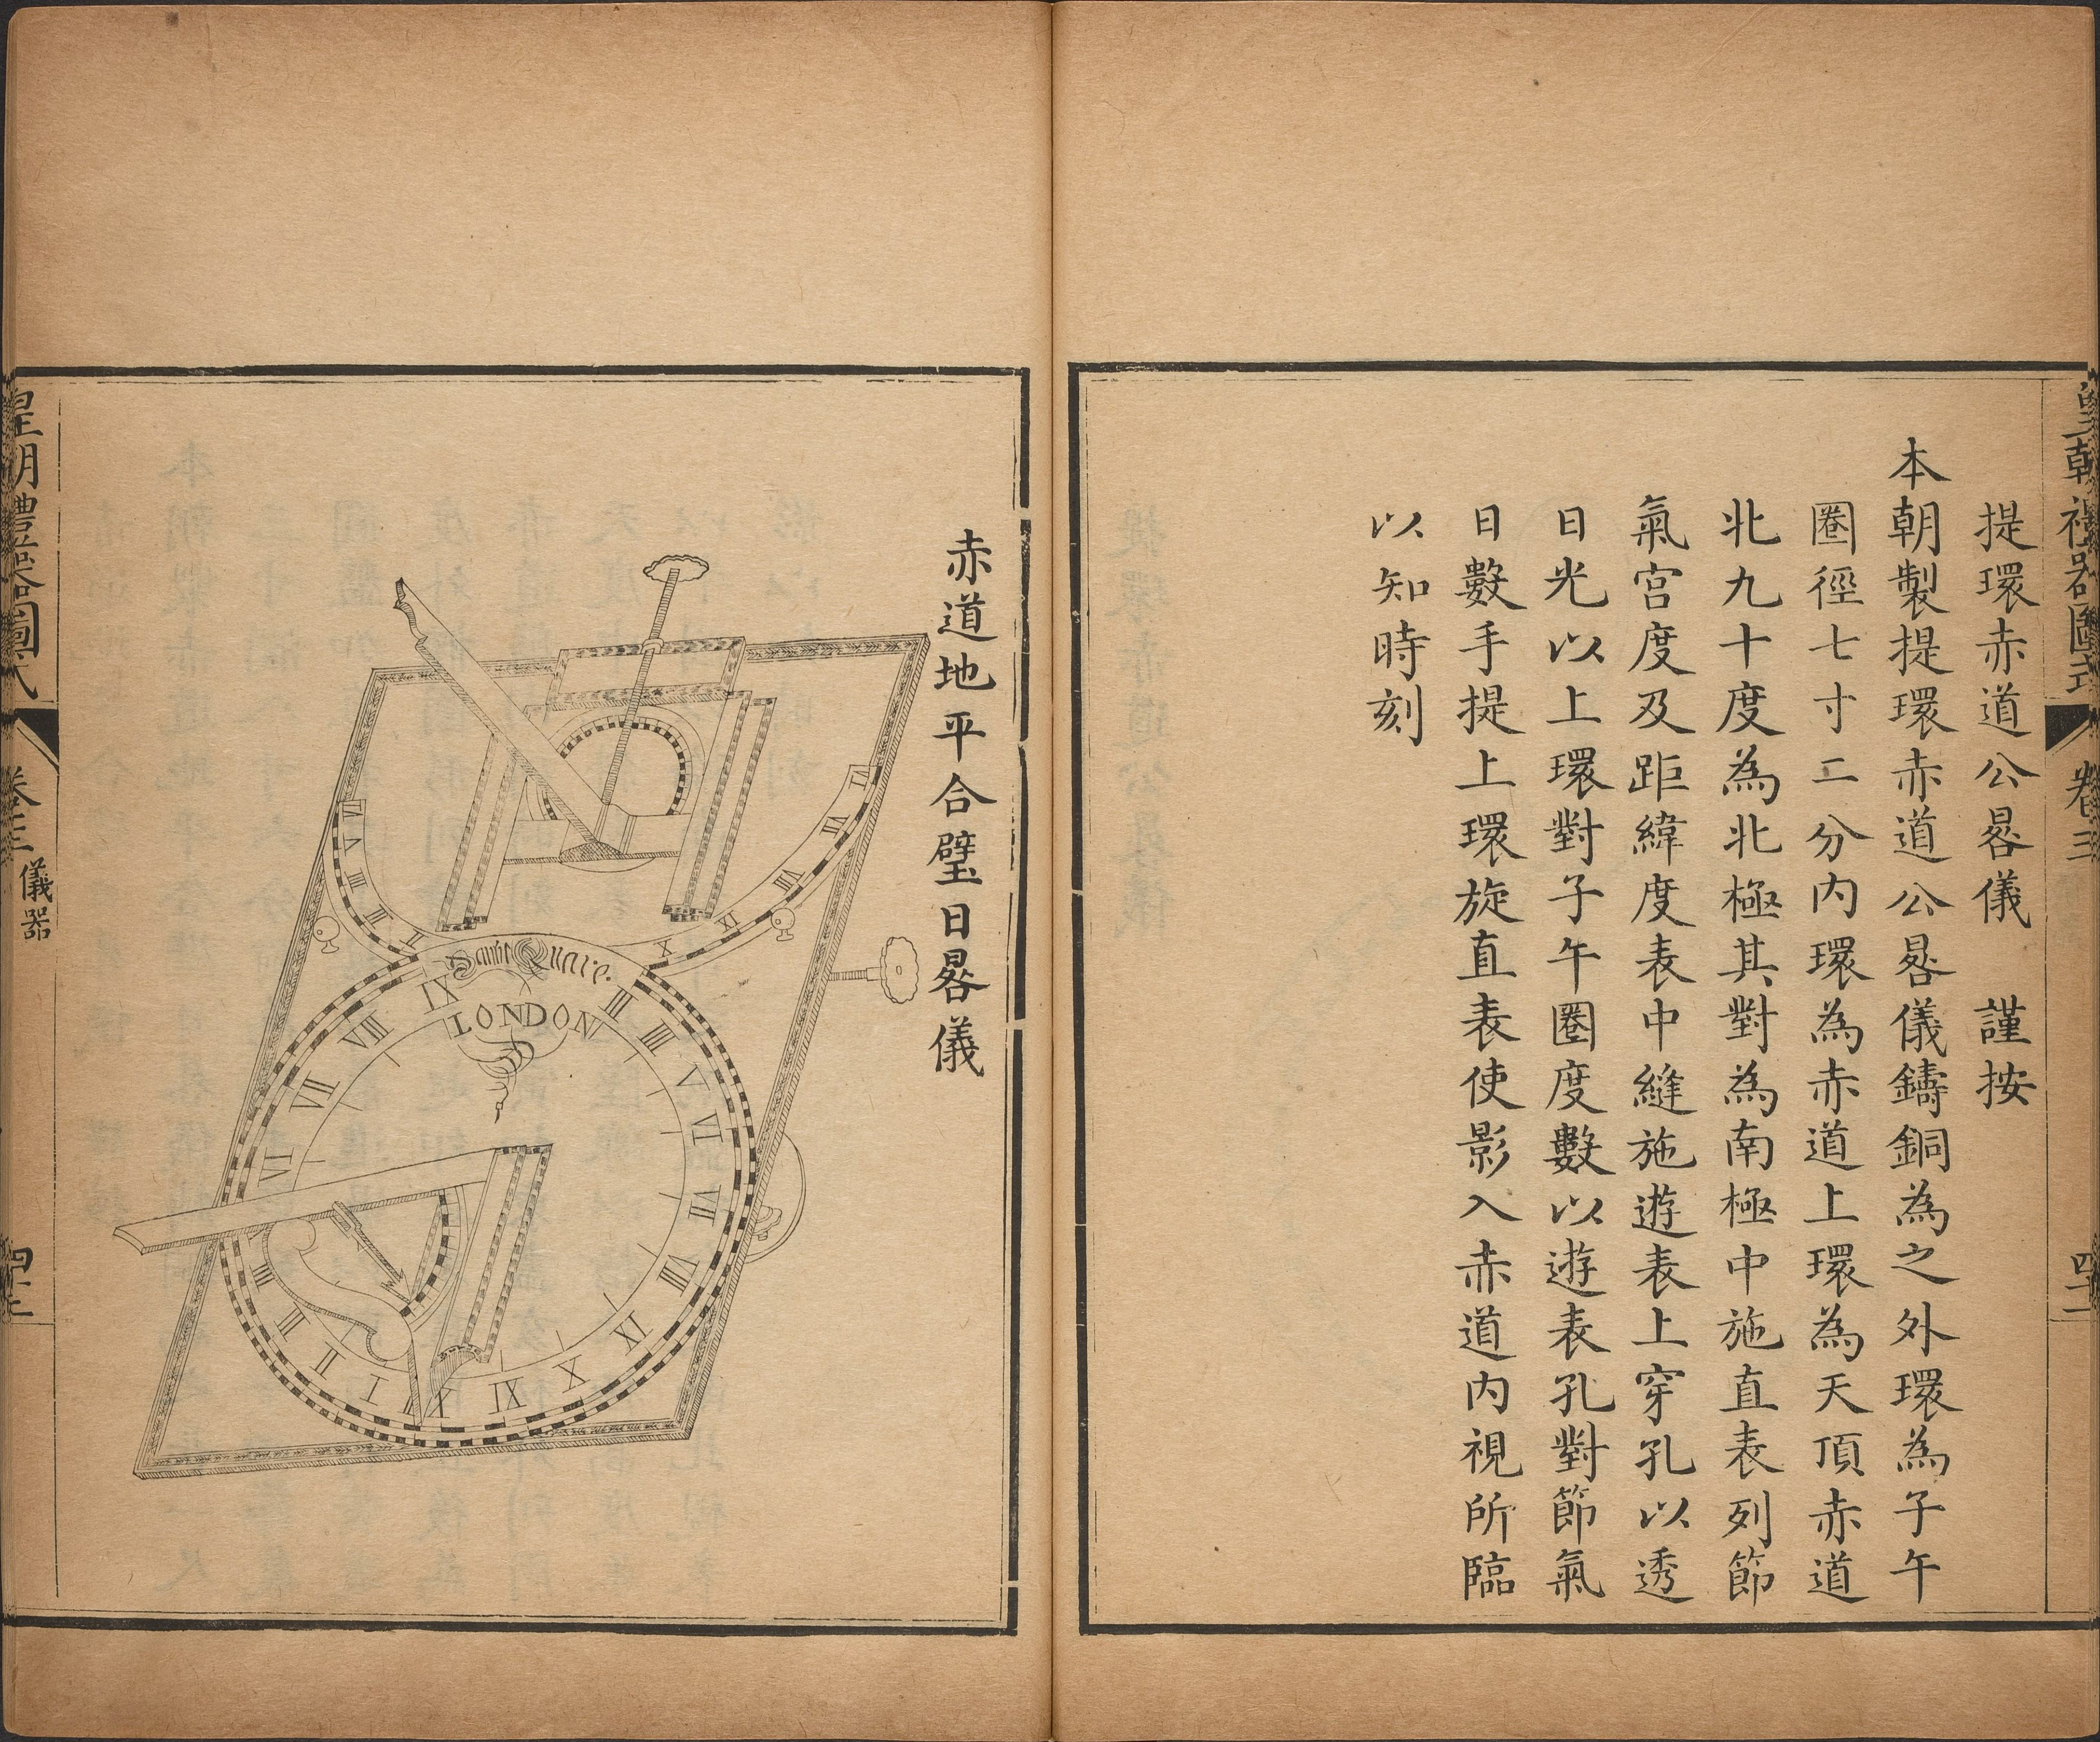 皇朝禮器圖式
卷三
提環赤道公晷儀　謹按
本朝製提環赤道公晷儀鑄銅為之外環為子午
圈徑七寸二分内環為赤道上環為天頂赤道
北九十度為北極其對為南極中施直表列節
氣宫度及距緯度表中縫施遊表上穿孔以透
日光以上環對子午圈度數以遊表孔對節氣
日數手提上環旋直表使影入赤道内視所臨
以知時刻
赤道地平合璧日晷儀
Quare.
LONDON
皇朝禮器圖式
卷三
儀器